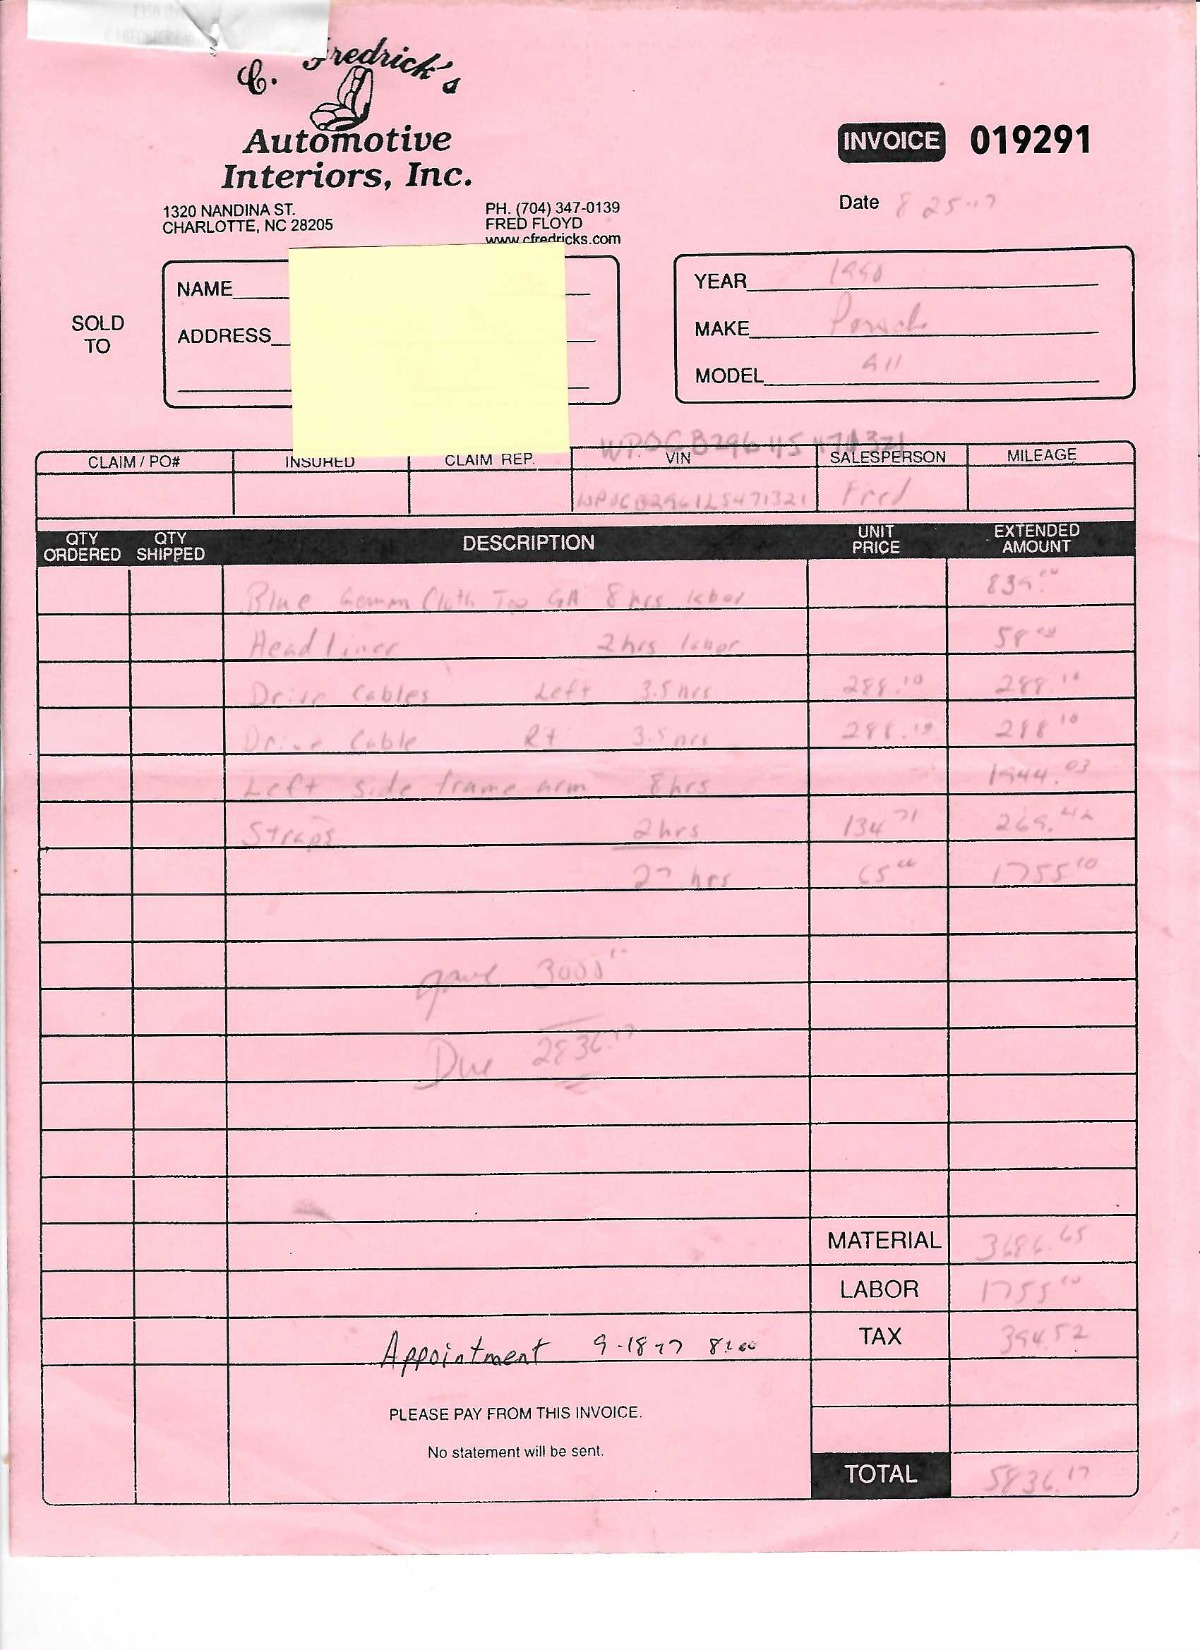 C. Fredrick's
Automotive
Interiors, Inc.
1320 NANDINA ST.
CHARLOTTE, NC 28205
PH. (704) 347-0139
FRED FLOYD
www.cfredricks.com
INVOICE 019291
Date 8 25-17
SOLD TO
NAME
ADDRESS
YEAR 1990
MAKE Porsche
MODEL 911
CLAIM / PO# INSURED CLAIM REP. VIN SALESPERSON MILEAGE
WP0CB2961LS471321 Fred
QTY ORDERED QTY SHIPPED DESCRIPTION UNIT PRICE EXTENDED AMOUNT
Blue German Cloth Top 8 hrs labor 839.00
Headliner 2 hrs labor 58.00
Drive Cables Left 3.5 hrs 288.10 288 10
Drive Cable Rt 3.5 hrs 288.10 288 10
Left side frame arm 8 hrs 1944.03
Straps 2 hrs 134 71 269.42
27 hrs 65 00 1755 00
gave 3000
Due 2836.17
MATERIAL 3686.65
LABOR 1755 00
TAX 394.52
Appointment 9-18-17 8:00
PLEASE PAY FROM THIS INVOICE.
No statement will be sent.
TOTAL 5836.17